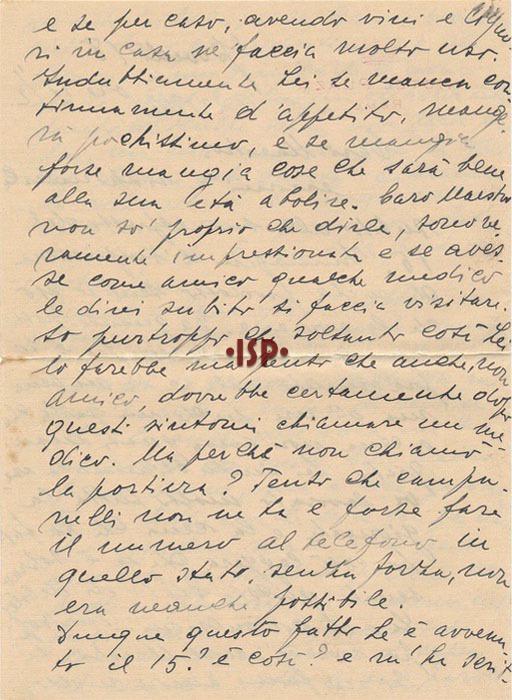 e se per caso, avendo vini e liquo
ri in casa ne faccia molto uso.
Indubbiamente Lei se manca con
tinuamente d'appetito, mange
rà pochissimo, e se mangia
forse mangia cose che sarà bene
alla sua età abolire. Caro Maestro
non so' proprio che dirle, sono ve
ramente impressionata e se aves-
se come amico qualche medico
le direi subito si faccia visitare.
So purtroppo che soltanto così Lei
·ISP·
lo farebbe ma sento che anche, non
amico, dovrebbe certamente dopo
questi sintomi chiamare un mé-
dico. Ma perché non chiamò
la portiera? Sento che campa-
nelli non ne ha e forse fare
il numero al telefono in
quello stato, senza forza, non
era neanche possibile.
Dunque questo fatto Le è avvenu
to il 15? è così? e m'ha scrit